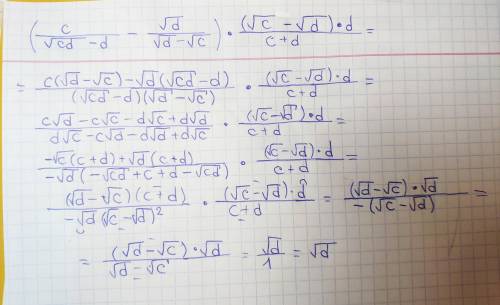 (c/(√cd - d) - √d/(√d - √c)) • ((√c - √d) • d)/(c + d) =
= (c(√d - √c) - √d(√cd - d))/((√cd - d)(√d - √c)) • ((√c - √d) • d)/(c + d) =
(c√d - c√c - d√c + d√d)/(d√c - c√d - d√d + d√c) • ((√c - √d) • d)/(c + d) =
(-√c(c + d) + √d(c + d))/(-√d(-√cd + c + d - √cd)) • ((√c - √d) • d)/(c + d) =
((√d - √c)(c + d))/(-√d(√c - √d)²) • ((√c - √d) • d)/(c + d) = ((√d - √c) • √d)/(-(√c - √d)) =
= ((√d - √c) • √d)/(√d - √c) = √d/1 = √d